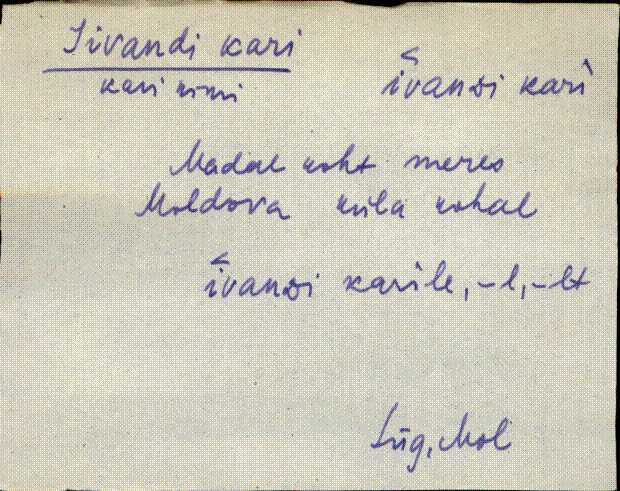 Iivandi kari
kari nimi
īvanᴅi kari
Madal koht meres
Moldova küla kohal
īvanᴅi karile, -l, -lt
Lüg, Mol